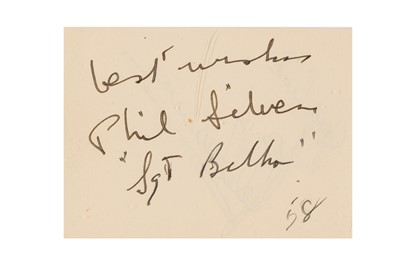 best wishes
Phil Silvers
"Sgt Bilko"
'58